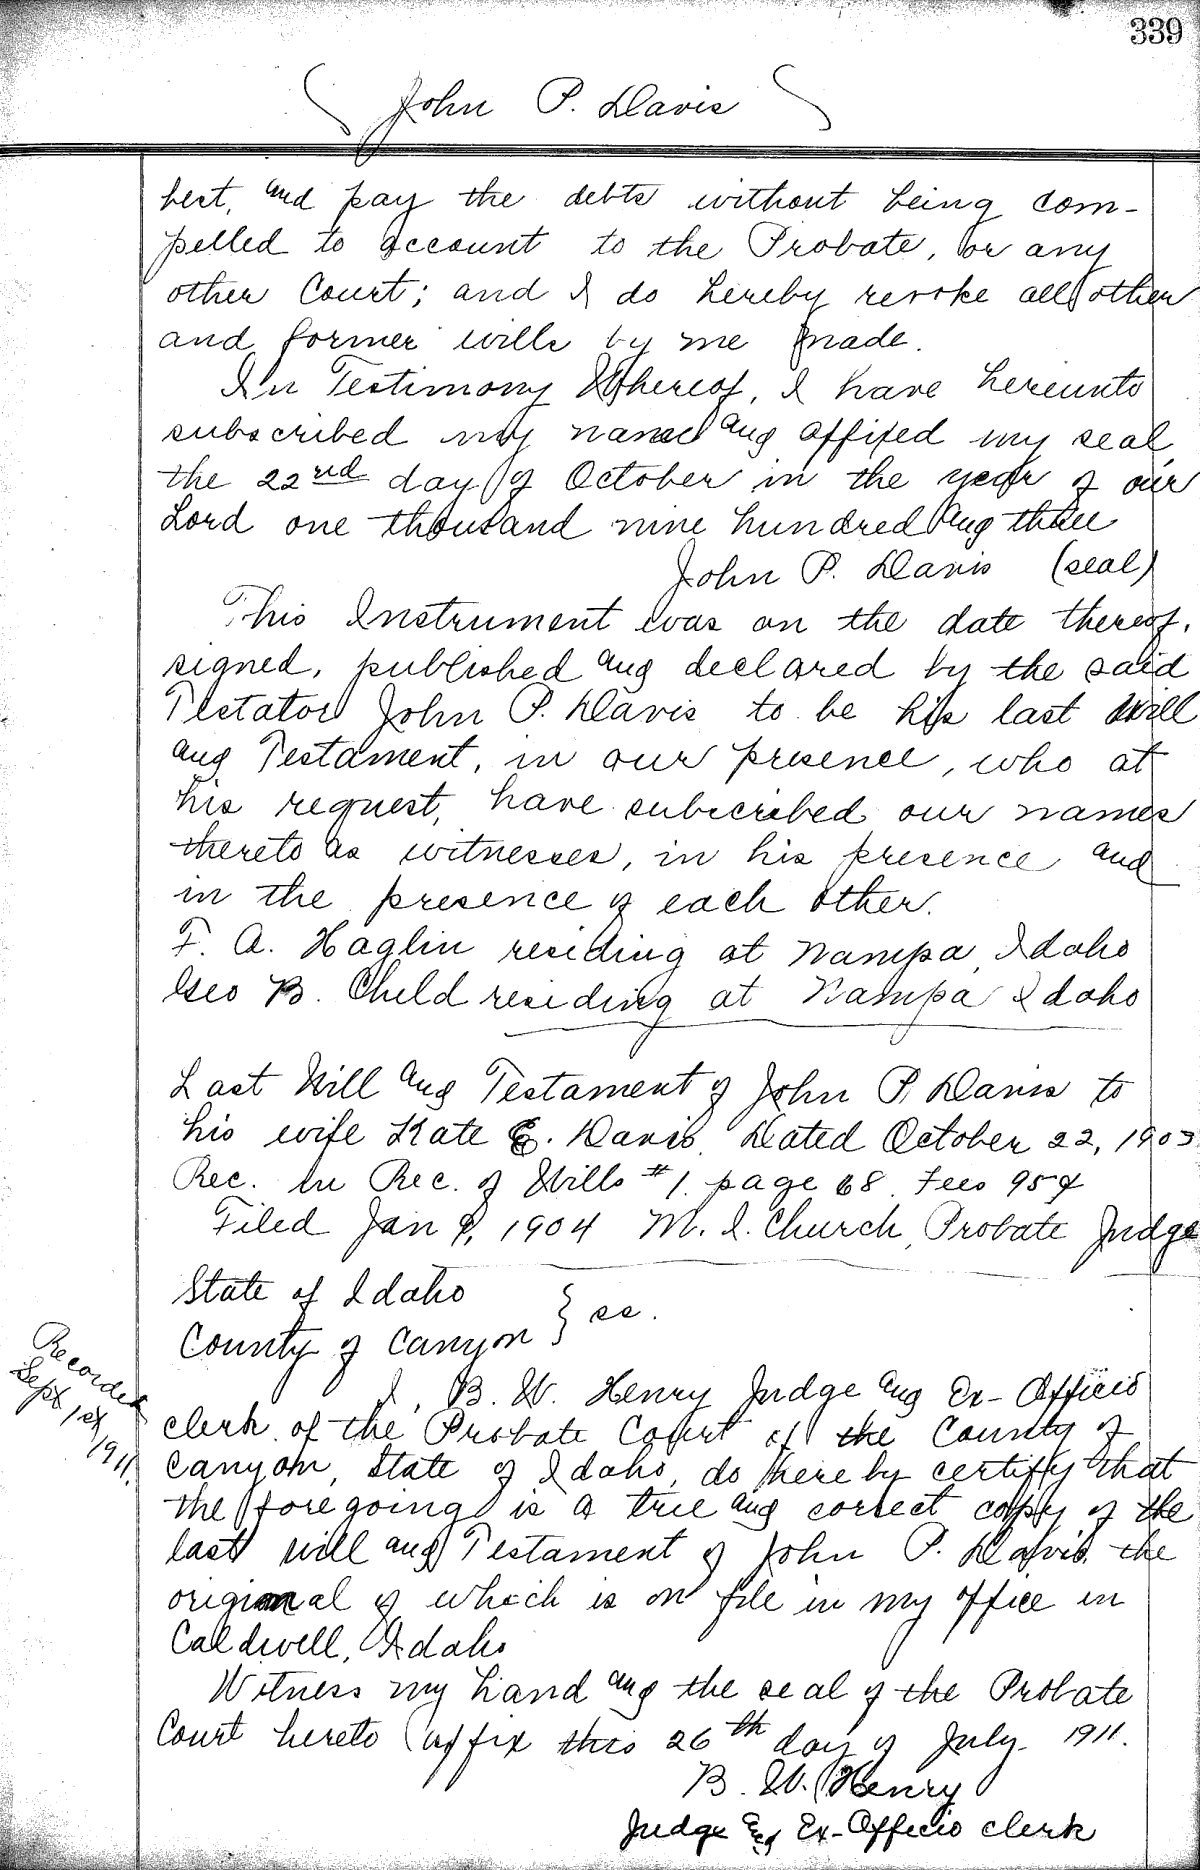 339
John P. Davis
best, and pay the debts without being com-
pelled to account to the Probate, or any
other Court; and I do hereby revoke all other
and former wills by me made.
In Testimony Whereof, I have hereunto
subscribed my name and affixed my seal,
the 22nd day of October in the year of our
Lord one thousand nine hundred and three
John P. Davis (seal)
This Instrument was on the date thereof,
signed, published and declared by the said
Testator John P. Davis to be his last Will
and Testament, in our presence, who at
his request, have subscribed our names
thereto as witnesses, in his presence and
in the presence of each other.
F. A. Haglin residing at Nampa, Idaho
Geo B. Child residing at Nampa Idaho
Last Will and Testament of John P. Davis to
his wife Kate E. Davis Dated October 22, 1903
Rec. in Rec. of Wills #1 page 68 Fees 95¢
Filed Jan 9, 1904 M. I. Church, Probate Judge
State of Idaho
County of Canyon } ss.
I, B. W. Henry Judge and Ex-Officio
Recorded
Sept 1st
1911.
clerk of the Probate Court of the County of
Canyon, State of Idaho, do hereby certify that
the foregoing is a true and correct copy of the
last will and Testament of John P. Davis the
original of which is on file in my office in
Caldwell, Idaho
Witness my hand and the seal of the Probate
Court hereto affix this 26th day of July 1911.
B. W. Henry
Judge and Ex-Officio clerk